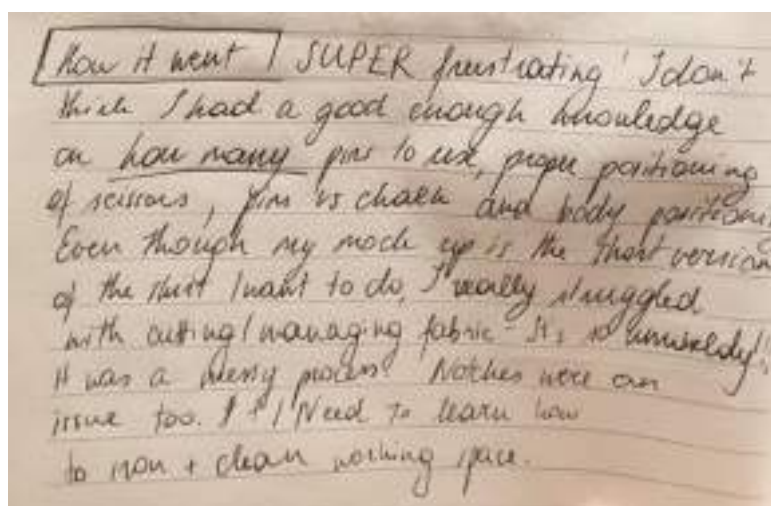 How it went | SUPER frustrating! I don't
think I had a good enough knowledge
on how many pins to use, proper positioning
of scissors, pins vs chalk and body positioning
Even though my mock up is the short version
of the skirt I want to do, I really struggled
with cutting/managing fabric - It's so unwieldy!
It was a messy process! Notches were an
issue too. I Need to learn how
to iron + clean working space.